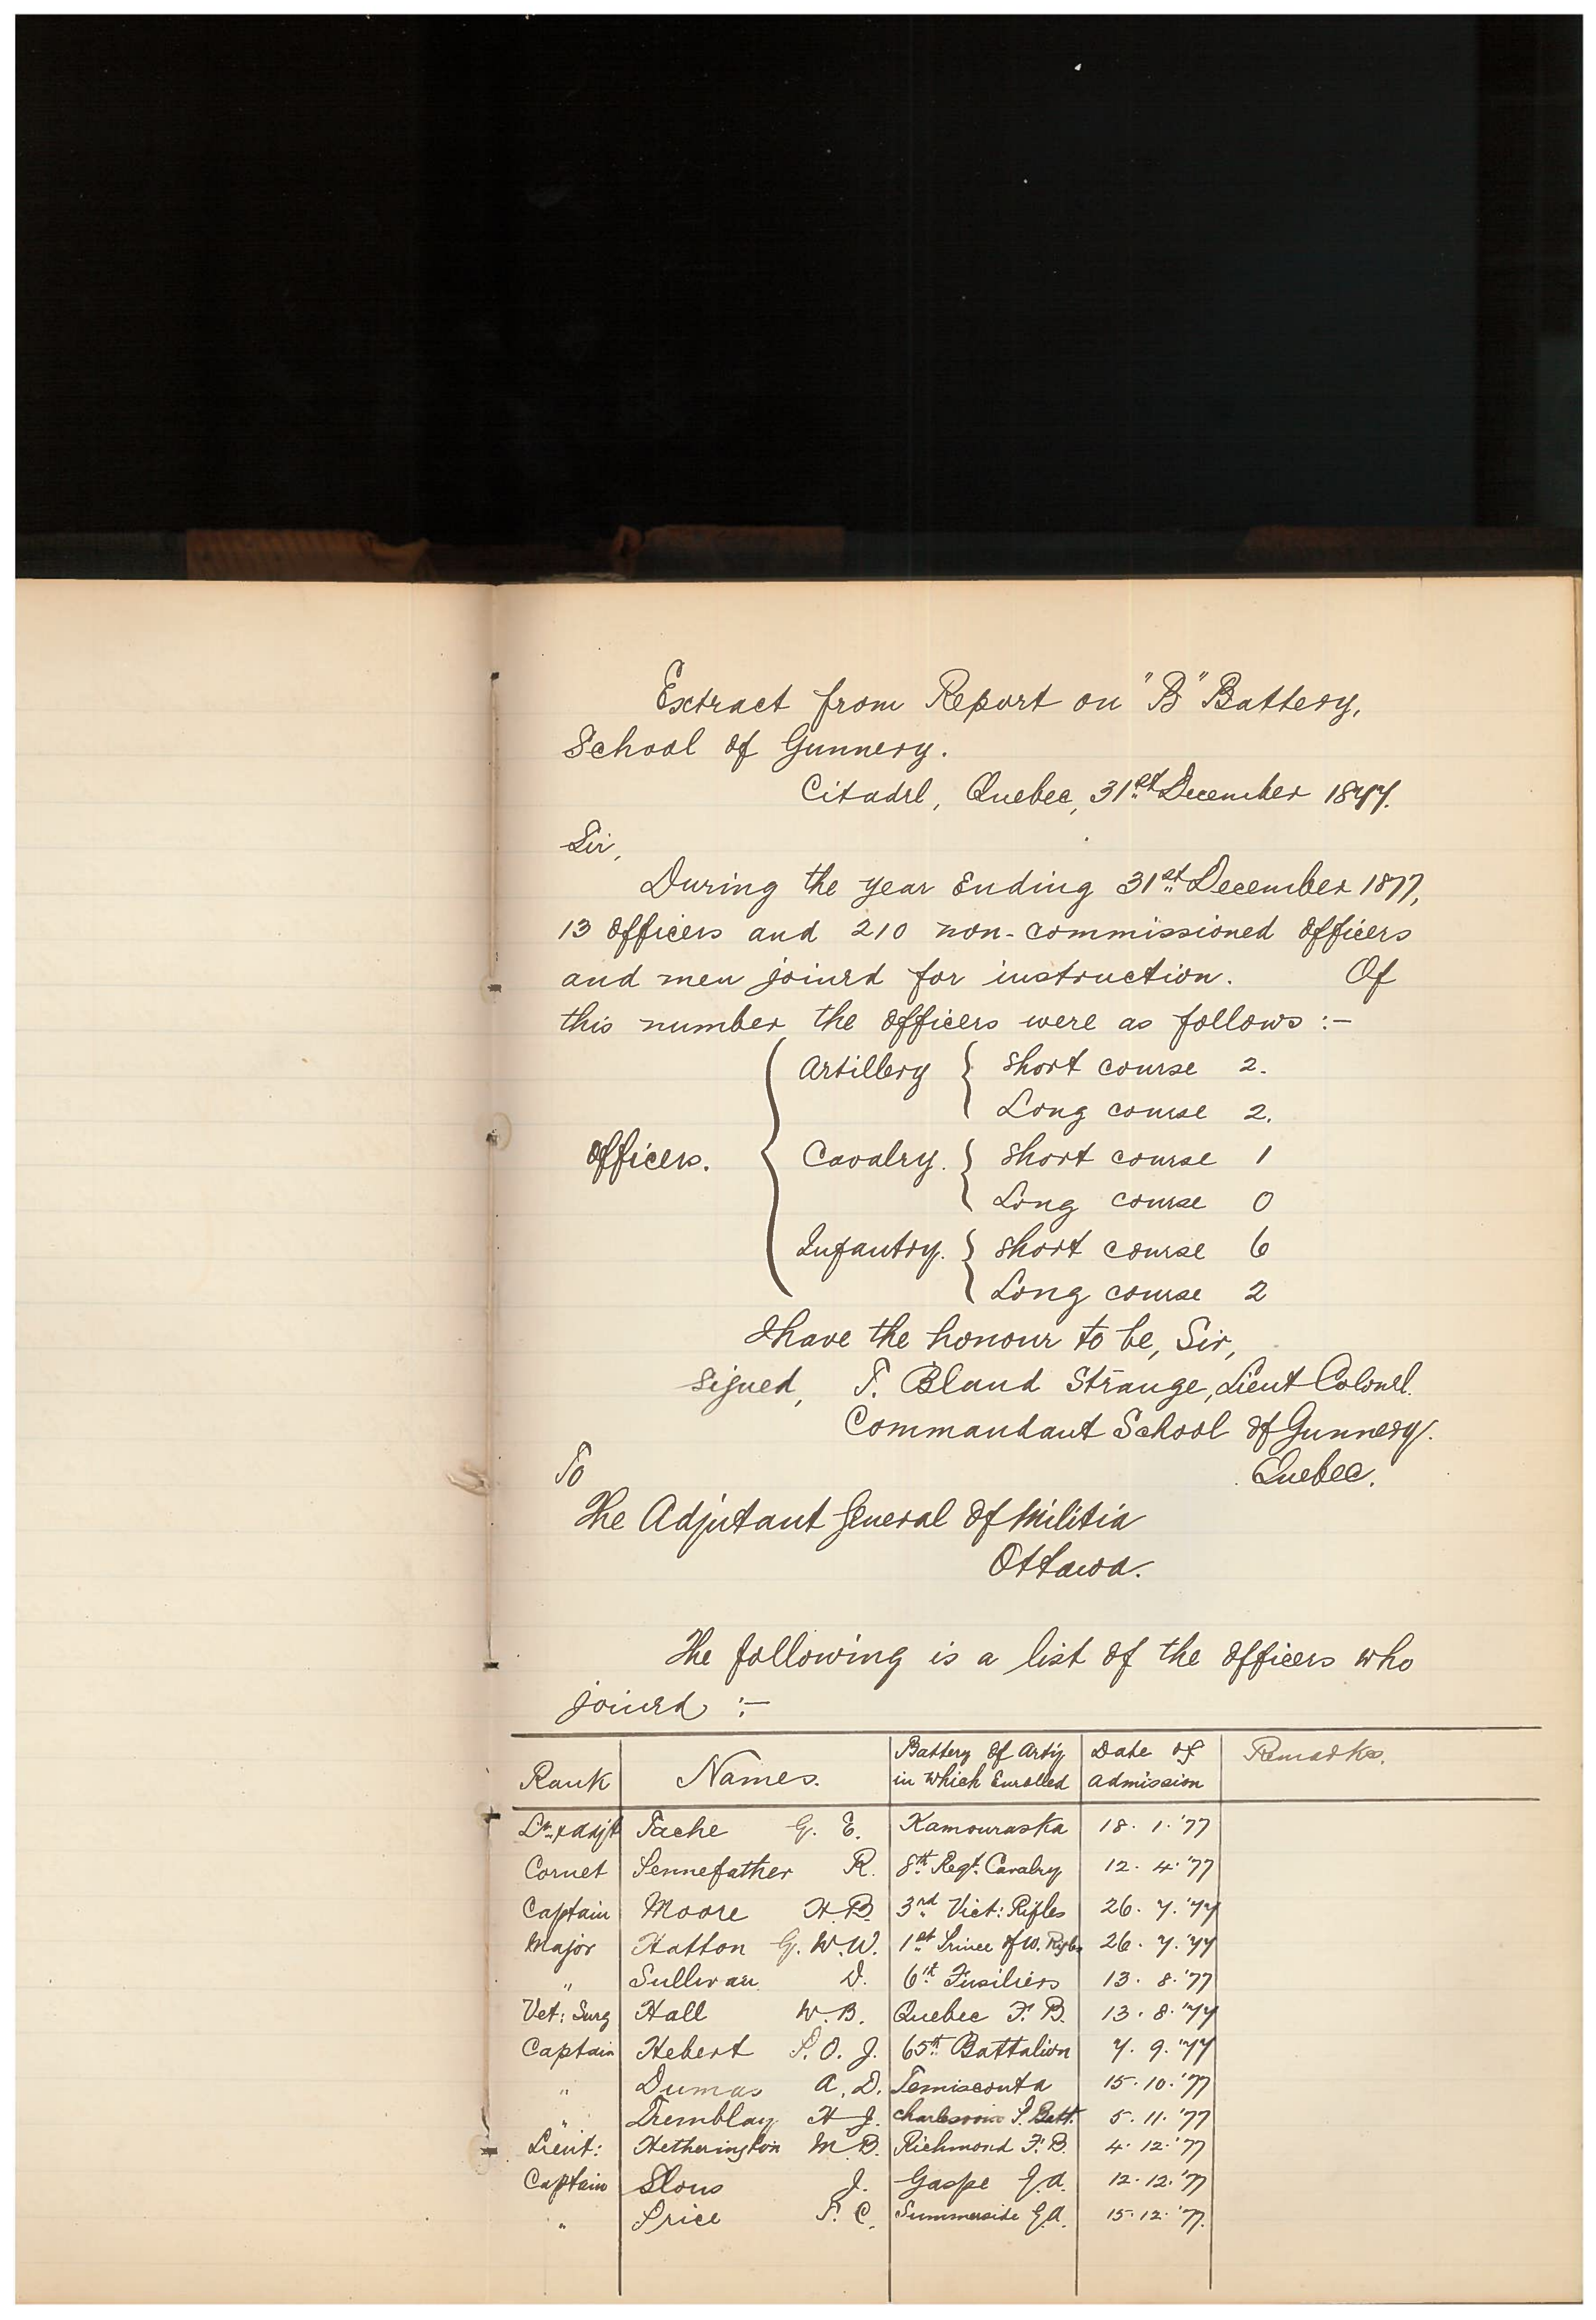 Extract from Report on "B" Battery,
School of Gunnery.
Citadel, Quebec, 31st December 1877.
Sir,
During the year Ending 31st December 1877,
13 Officers and 210 non-commissioned Officers
and men joined for instruction. Of
this number the Officers were as follows :-
Artillery { Short course 2.
Long course 2.
Officers. { Cavalry. { Short course 1
Long course 0
Infantry. { Short course 6
Long course 2
I have the honour to be, Sir,
Signed, T. Bland Strange, Lieut Colonel.
Commandant School of Gunnery.
To Quebec.
The Adjutant General of Militia
Ottawa.
The following is a list of the Officers who
joined :-
Rank Names. Battery of Arty in which Enrolled Date of Admission Remarks.
Lt. & Adjt Tache G. E. Kamouraska 18. 1. '77
Cornet Pennefather R. 8th Regt. Cavalry 12. 4. '77
Captain Moore H. B. 3rd Vict: Rifles 26. 7. '77
Major Hatton G. W. W. 1st Prince of W. Rifles 26. 7. '77
" Sullivan D. 6th Fusiliers 13. 8. '77
Vet: Surg Hall W. B. Quebec F. B. 13. 8. '77
Captain Hebert P. O. J. 65th Battalion 7. 9. '77
" Dumas A. D. Temisconta 15. 10. '77
" Tremblay H J. Charlevoix P. Batt. 5. 11. '77
Lieut: Hetherington M. B. Richmond F. B. 4. 12. '77
Captain Slous J. Gaspe G.A. 12. 12. '77
" Price T. C. Summerside G.A. 15. 12. '77.